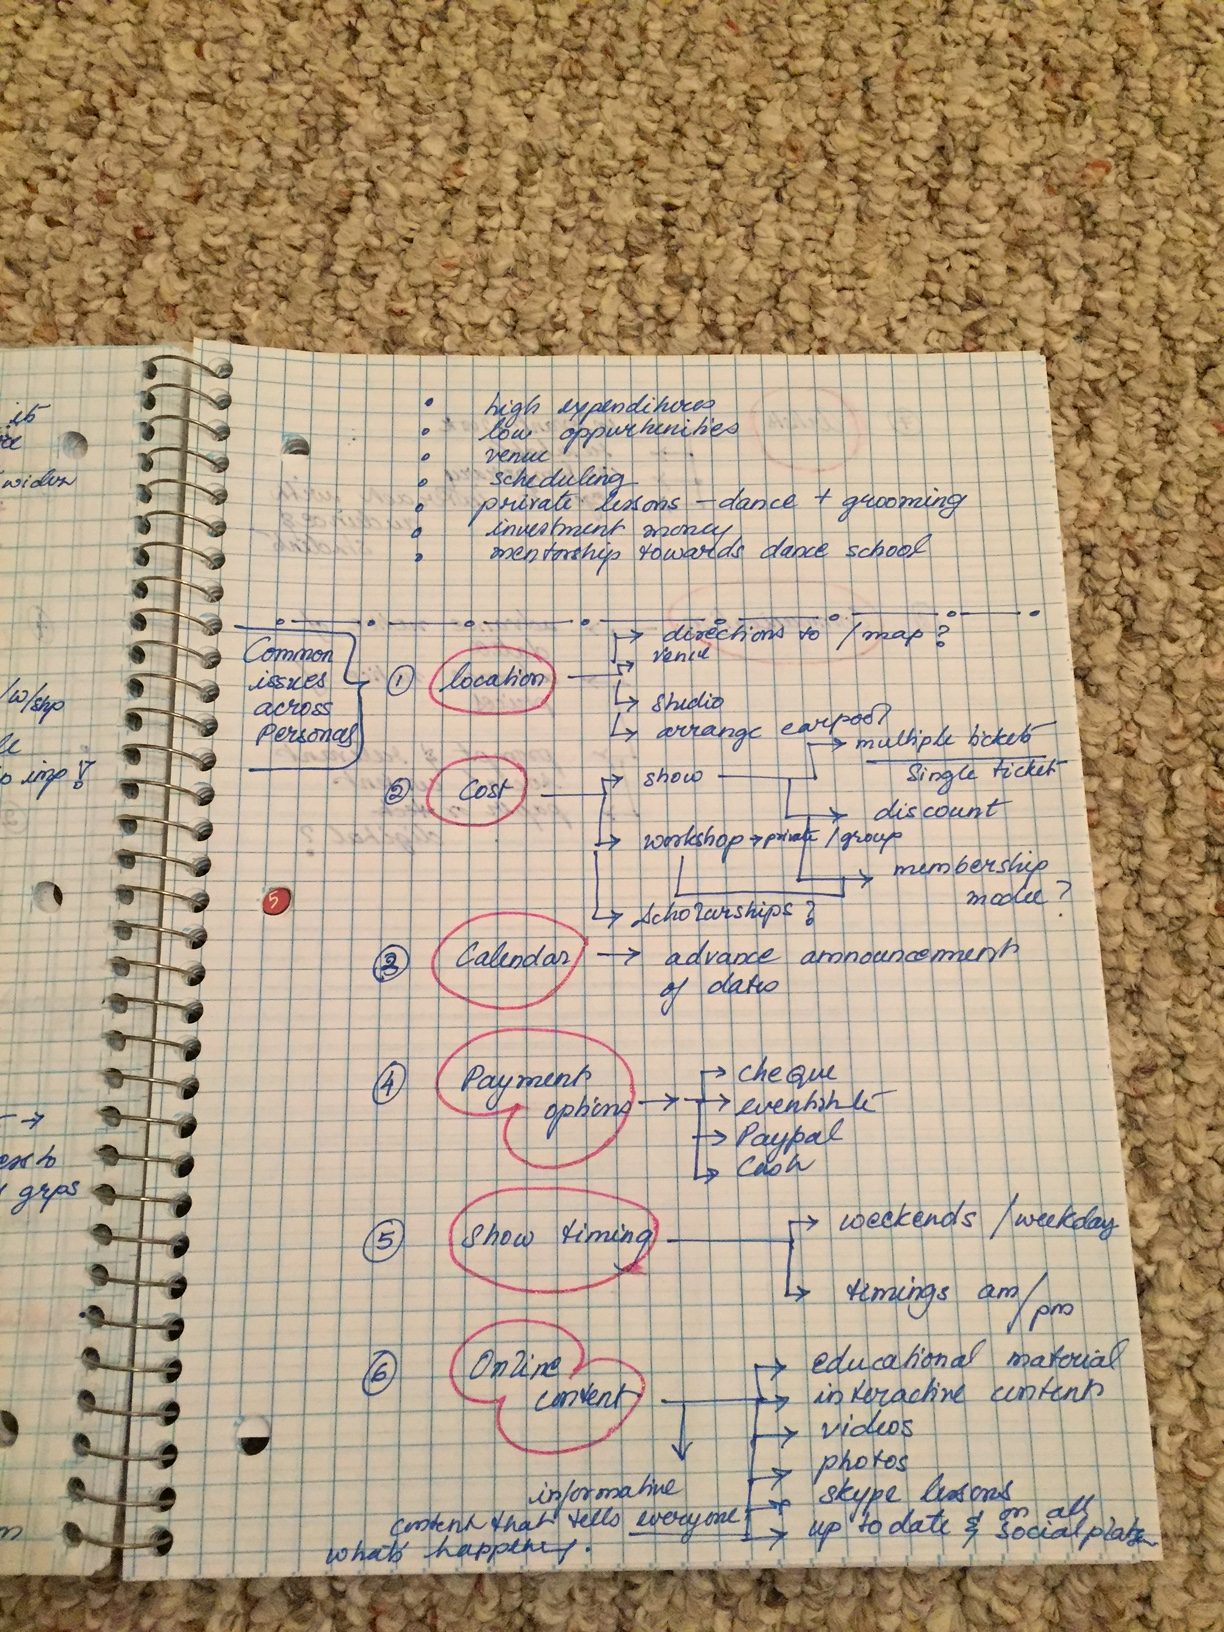 it
widow
/w/shp
imp!
grps
• high expenditures
• low oppurtunities
• venue
• scheduling
• private lessons - dance + grooming
• investment money
• mentorship towards dance school
Common
issues
across
Personas
① location
directions to / map?
venue
studio
arrange carpool?
② Cost
show
multiple tickets
Single ticket
discount
workshop → private / group
membership
model?
Scholarships?
5
③ Calendar → advance announcement
of dates
④ Payment
options
cheque
eventbrite
Paypal
Cash
⑤ Show timing
weekends / weekday
timings am/
pm
⑥ Online
content
educational material
interactive content
videos
photos
skype lessons
up to date & on all
social
informative
content that tells everyone
whats happening.